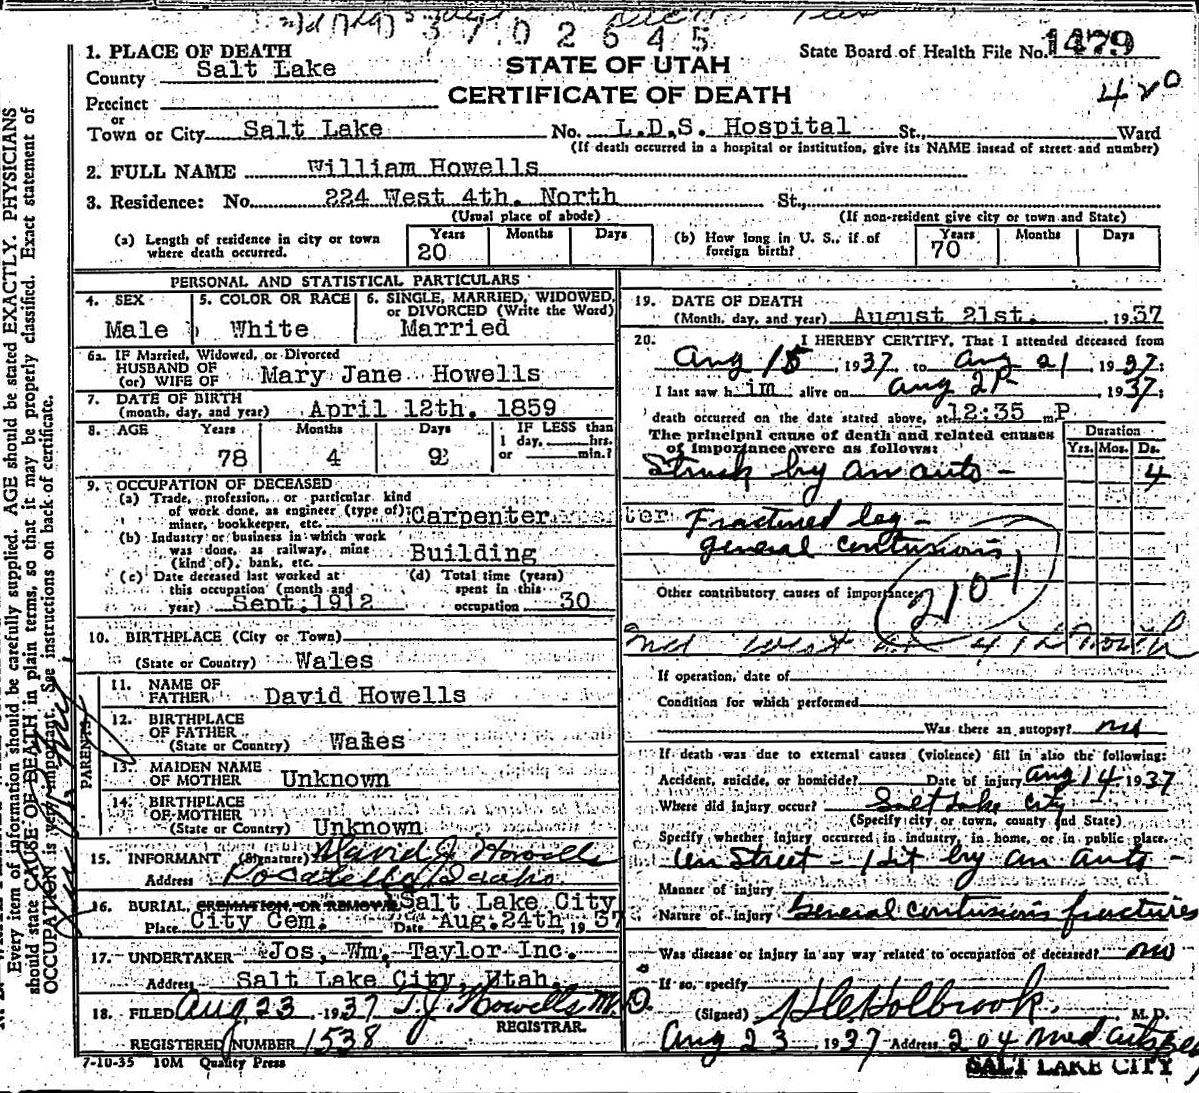 3702645
1. PLACE OF DEATH
State Board of Health File No. 1479
County Salt Lake
STATE OF UTAH
CERTIFICATE OF DEATH
420
Precinct
or
Town or City Salt Lake No. L.D.S. Hospital St., Ward
(If death occurred in a hospital or institution, give its NAME instead of street and number)
2. FULL NAME William Howells
3. Residence: No. 224 West 4th. North St.,
(Usual place of abode) (If non-resident give city or town and State)
(a) Length of residence in city or town where death occurred. Years 20 Months Days
(b) How long in U. S., if of foreign birth? Years 70 Months Days
PERSONAL AND STATISTICAL PARTICULARS
4. SEX Male
5. COLOR OR RACE White
6. SINGLE, MARRIED, WIDOWED, or DIVORCED (Write the Word) Married
6a. IF Married, Widowed, or Divorced
HUSBAND OF
(or) WIFE OF Mary Jane Howells
7. DATE OF BIRTH
(month, day, and year) April 12th. 1859
8. AGE Years 78 Months 4 Days 9 IF LESS than 1 day, hrs. or min.?
9. OCCUPATION OF DECEASED
(a) Trade, profession, or particular kind
of work done, as engineer (type of);
miner, bookkeeper, etc. Carpenter
(b) Industry or business in which work
was done, as railway, mine
(kind of), bank, etc. Building
(c) Date deceased last worked at
this occupation (month and
year) Sept. 1912
(d) Total time (years)
spent in this
occupation 30
10. BIRTHPLACE (City or Town)
(State or Country) Wales
PARENTS
11. NAME OF
FATHER David Howells
12. BIRTHPLACE
OF FATHER
(State or Country) Wales
13. MAIDEN NAME
OF MOTHER Unknown
14. BIRTHPLACE
OF MOTHER
(State or Country) Unknown
15. INFORMANT (Signature) David J. Howells
Address Pocatello, Idaho
16. BURIAL, CREMATION, OR REMOVAL Salt Lake City
Place City Cem. Date Aug. 24th, 1937
17. UNDERTAKER Jos. Wm. Taylor Inc.
Address Salt Lake City, Utah.
18. FILED Aug 23 1937 T. J. Howells M. D.
REGISTRAR.
REGISTERED NUMBER 1538
7-10-35 10M Quality Press
19. DATE OF DEATH
(Month, day, and year) August 21st. 1937
20. I HEREBY CERTIFY, That I attended deceased from
Aug 15, 1937 to Aug 21, 1937;
I last saw him alive on Aug 21 1937;
death occurred on the date stated above, at 12:35 m. P
The principal cause of death and related causes
of importance were as follows:
Duration
Yrs. Mos. Ds.
Struck by an auto - 4
ter Fractured leg -
general contusions
210-1
Other contributory causes of importance:
West 4th North
If operation, date of
Condition for which performed
Was there an autopsy? no
If death was due to external causes (violence) fill in also the following:
Accident, suicide, or homicide? Date of injury Aug 14 1937
Where did injury occur? Salt Lake City
(Specify city or town, county and State)
Specify whether injury occurred in industry, in home, or in public place.
On Street - Hit by an auto -
Manner of injury
Nature of injury General contusions fractures
Was disease or injury in any way related to occupation of deceased? no
If so, specify
(Signed) Holbrook M. D.
Aug 23 1937 Address 204 Med arts
SALT LAKE CITY
Every item of information should be carefully supplied. AGE should be stated EXACTLY. PHYSICIANS
should state CAUSE OF DEATH in plain terms, so that it may be properly classified. Exact statement of
OCCUPATION is very important. See instructions on back of certificate.